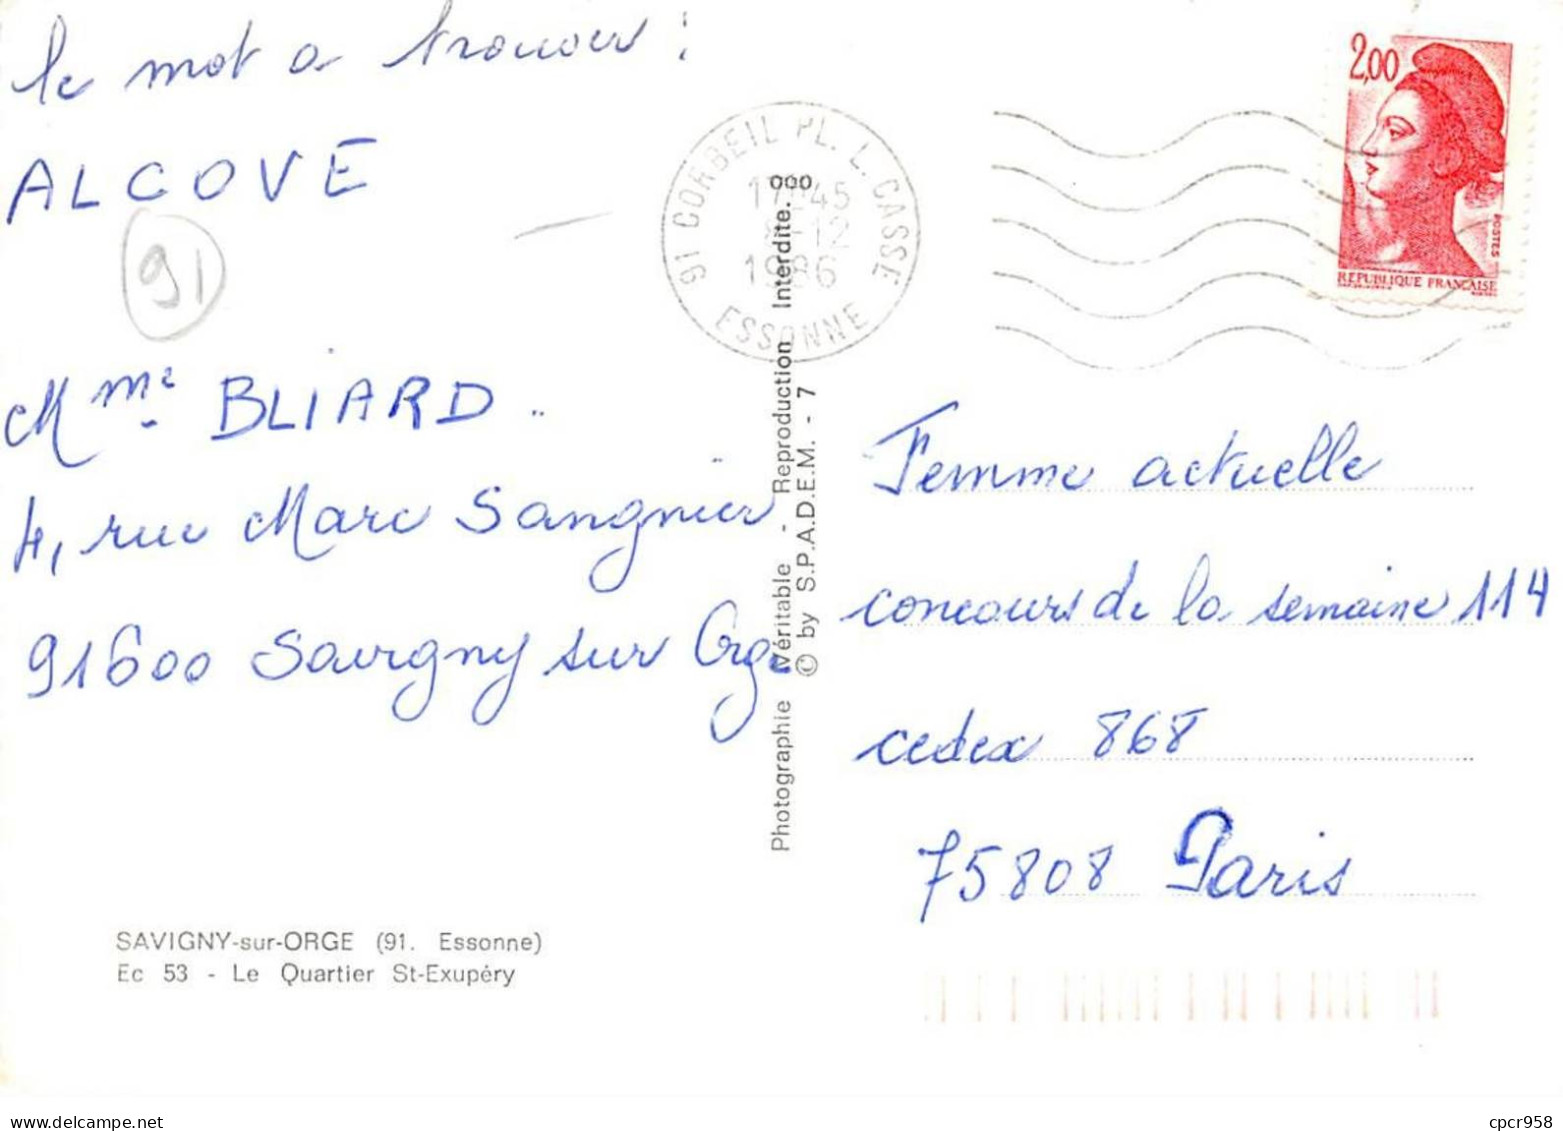 le mot a trouver :
ALCOVE
91
Mme BLIARD.
4, rue Marc Sangnier
91600 Savigny sur Orge
SAVIGNY-sur-ORGE (91. Essonne)
Ec 53 - Le Quartier St-Exupéry
Photographie Véritable - Reproduction Interdite.
© by S.P.A.D.E.M. - 7
000
91 CORBEIL PL. L. CASSE
17 45
12
1986
ESSONNE
2,00
POSTES
REPUBLIQUE FRANÇAISE
Femme actuelle
concours de la semaine 114
cedex 868
75808 Paris
cpcr958